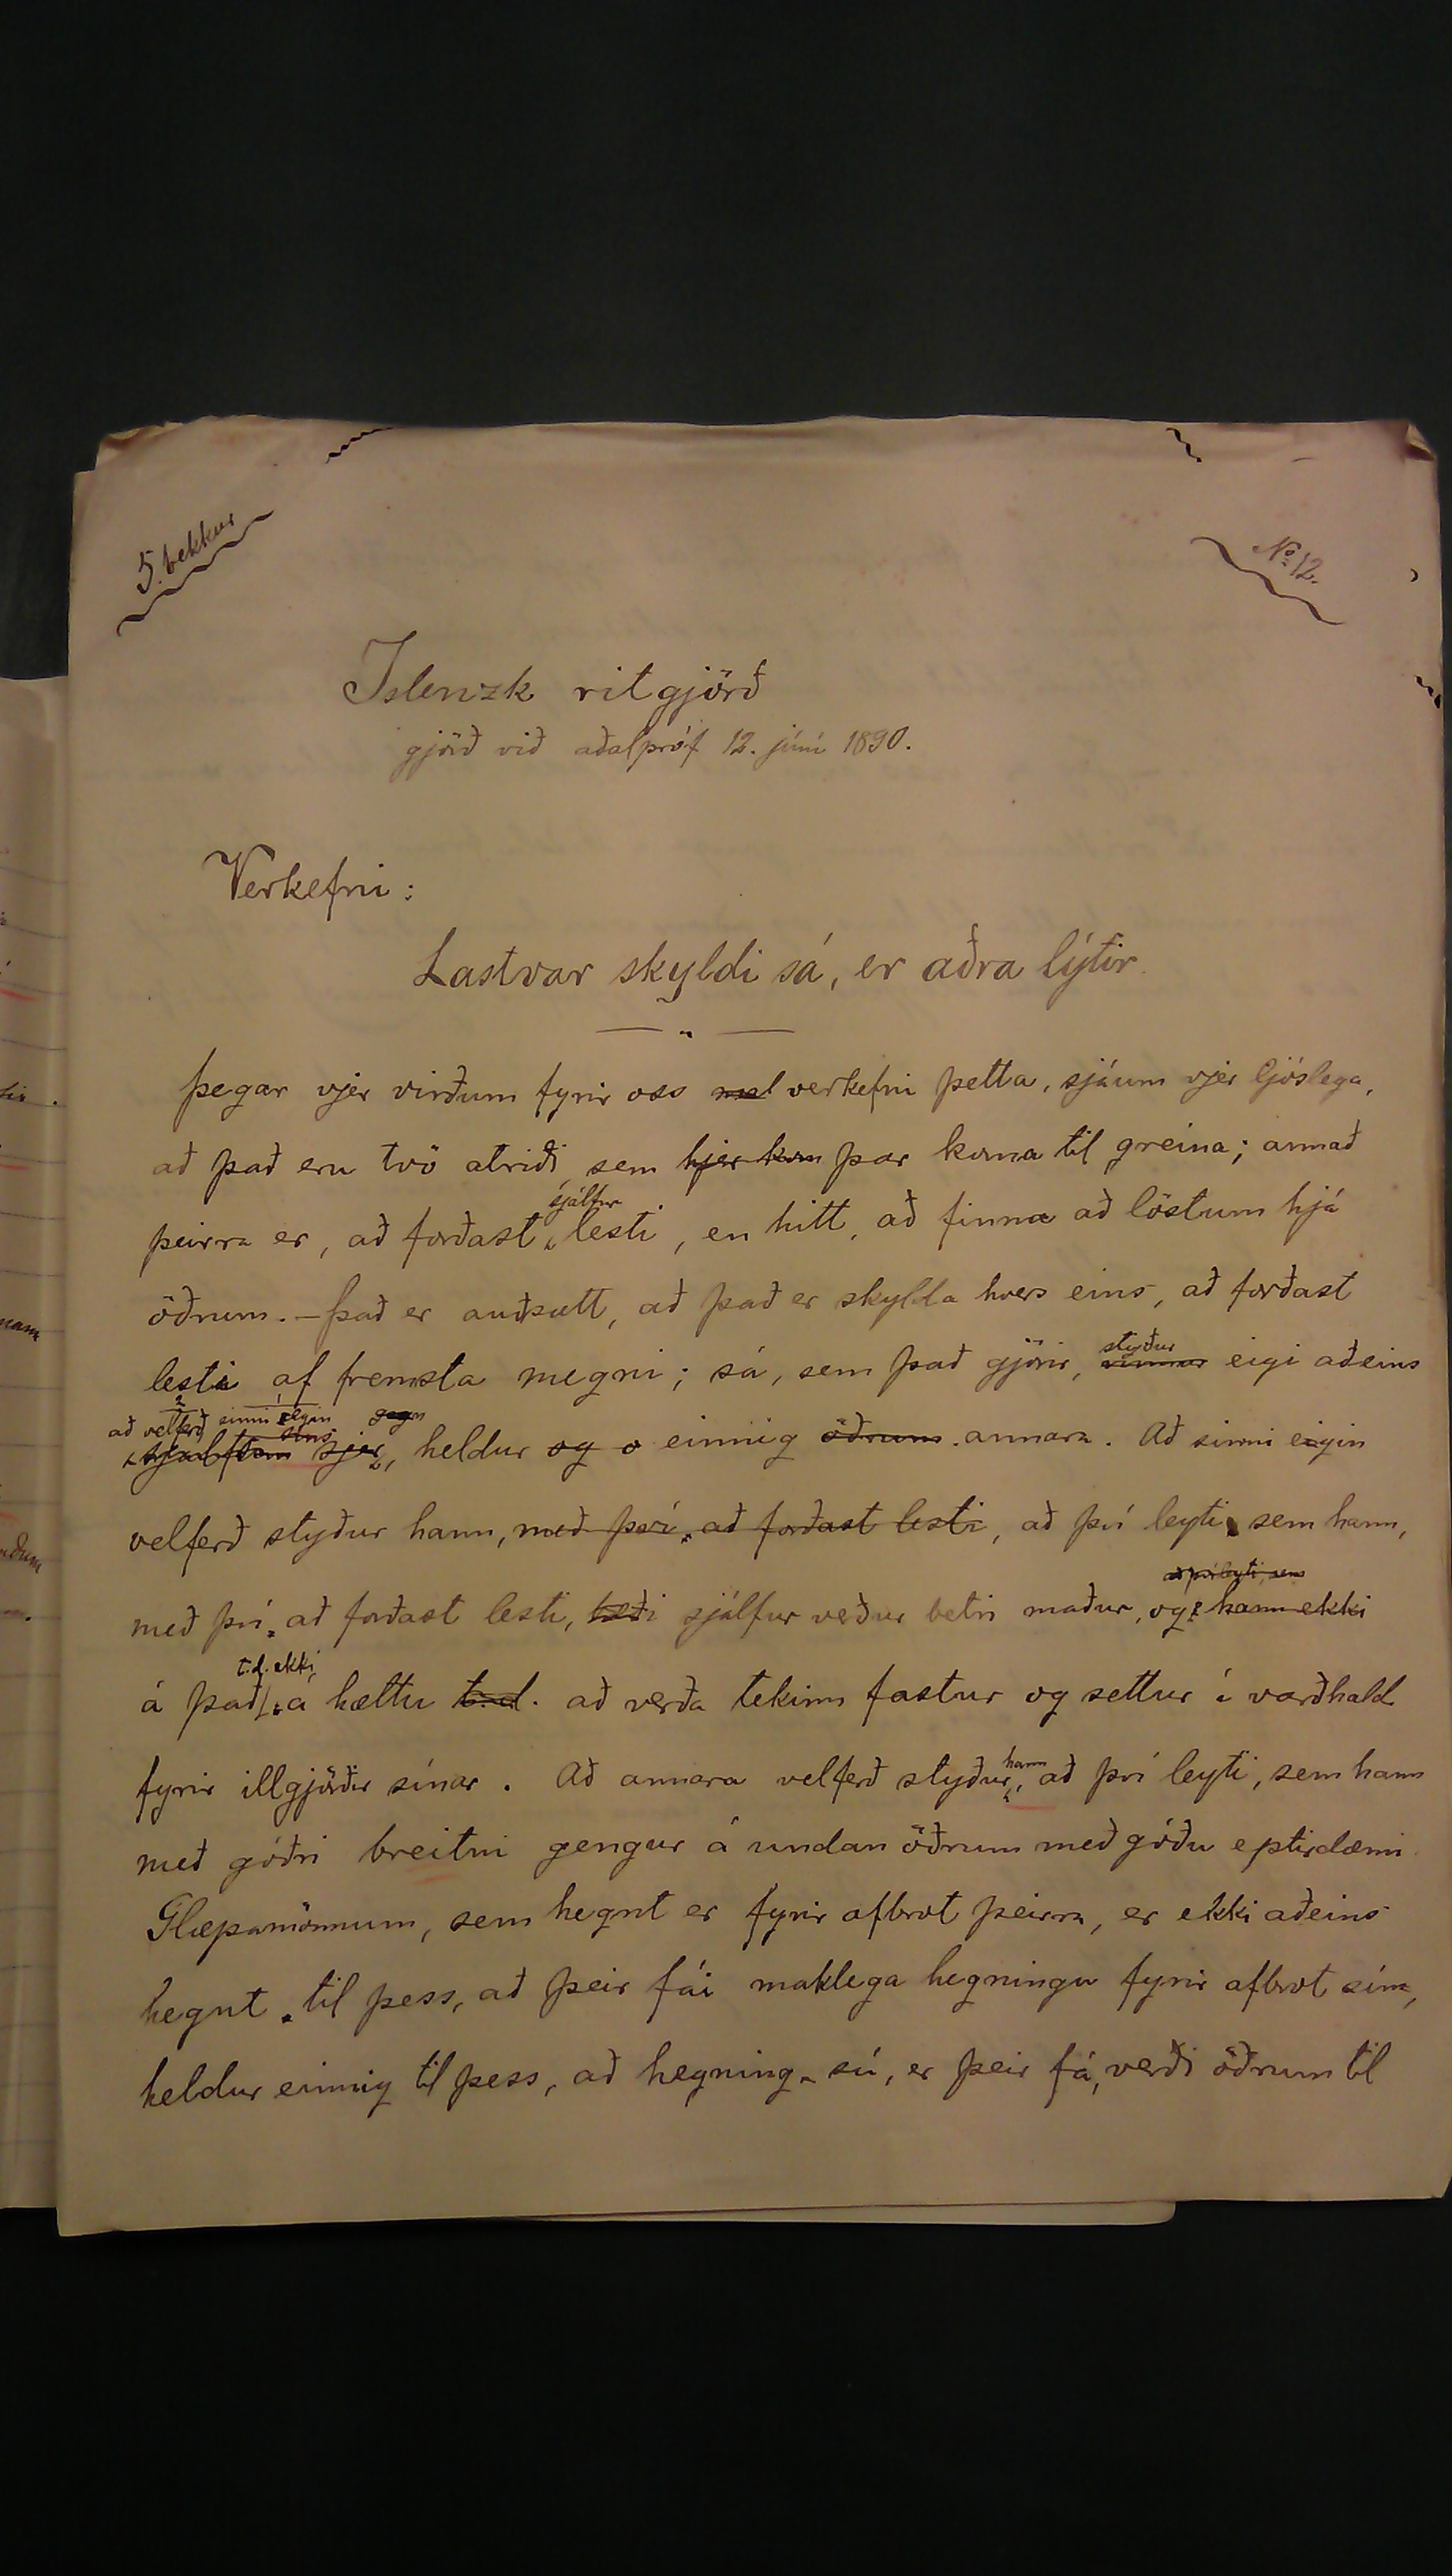 5. bekkur
No 12.
Islenzk ritgjörð
gjörð við aðalpróf 12. júni 1890.
Verkefni:
Lastvar skyldi sá, er aðra lýtir
þegar vjer virðum fyrir oss verkefni þetta, sjáum vjer ljóslega,
að það eru tvö atriði, sem hjer kom þar koma til greina; annað
sjálfur
þeirra er, að forðast lesti, en hitt, að finna að löstum hjá
öðrum. - Það er auðsætt, að það er skylda hvers eins, að forðast
styður
lesti af fremsta megni; sá, sem það gjörir, vinnur eigi aðeins
að velferð sinni eigin gagn
sjálfum sjer, heldur og o einnig öðrum annara. Að sinni eigin
velferð styður hann, með því, að forðast lesti, að því leyti sem hann,
að því leyti, sem
með því, að forðast lesti, bæði sjálfur veður betri maður, og hann ekki
t.d. ekki
á það á hættu t.d. að verða tekinn fastur og settur í varðhald
hann
fyrir illgjörðir sínar. Að annara velferð styður, að því leyti, sem hann
með góðri breitni gengur á undan öðrum með góðu eptirdæmi
Glæpamönnum, sem hegnt er fyrir afbrot þeirra, er ekki aðeins
hegnt til þess, að þeir fái maklega hegningu fyrir afbrot sín,
heldur einnig til þess, að hegning sú, er þeir fá, verði öðrum til